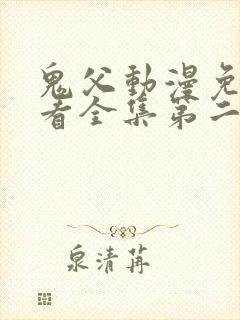 鬼父動漫免
看全集第二
泉清苒